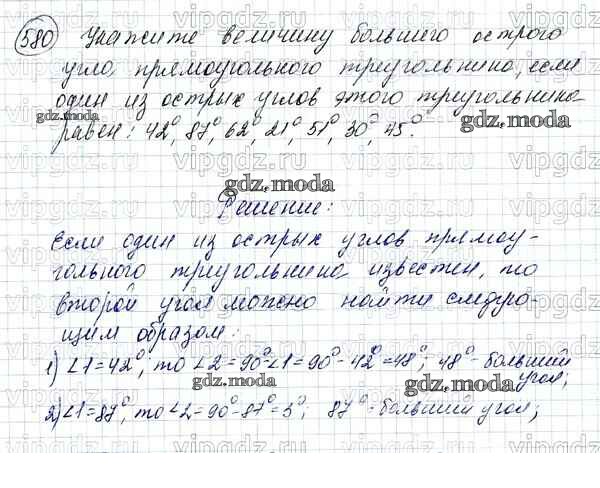 580 Укажите величину большего острого
угла прямоугольного треугольника, если
один из острых углов этого треугольника
равен: 42°, 87°, 62°, 21°, 51°, 30°, 45°.
gdz.moda
gdz.moda
gdz.moda
Решение:
Если один из острых углов прямоу-
гольного треугольника известен, то
второй угол можно найти следую-
щим образом:
1) ∠1=42°, то ∠2=90°-∠1=90°-42°=48°; 48°- больший
угол;
gdz.moda
gdz.moda
2) ∠1=87°, то ∠2=90°-87°=3°; 87°- больший угол;